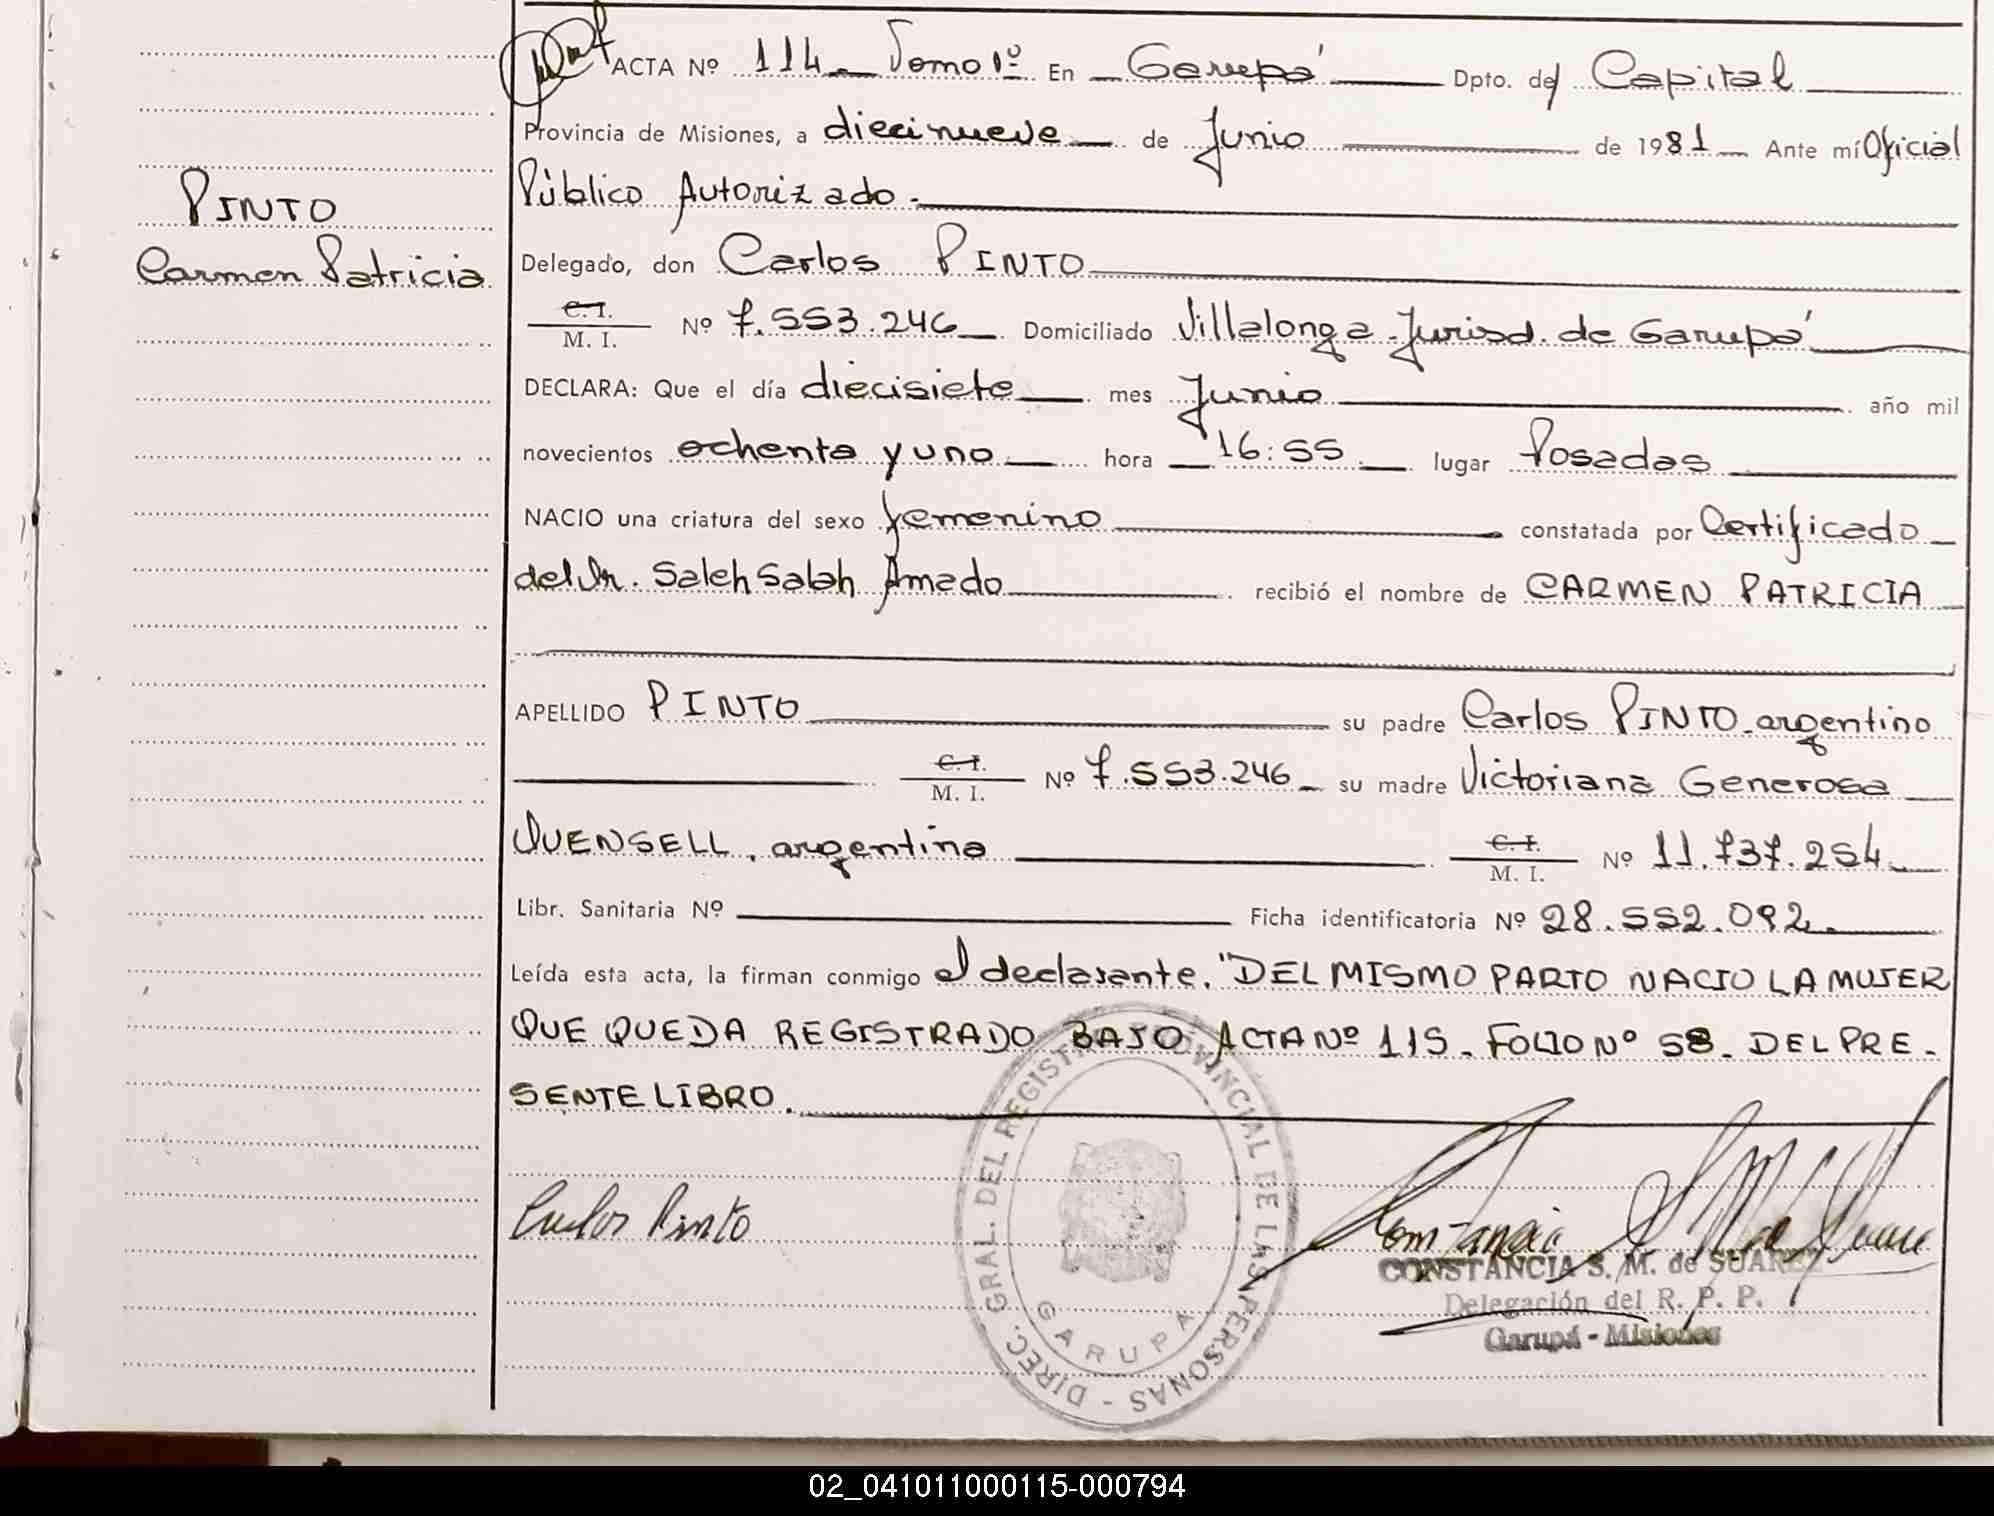 ACTA Nº 114 Tomo 1º En Garupá Dpto. de Capital
Provincia de Misiones, a diecinueve de Junio de 1981 Ante mí Oficial
Público Autorizado.
PINTO
Carmen Patricia
Delegado, don Carlos PINTO
C. I.
M. I. Nº 7.553.246 Domiciliado Villalonga Jurisd. de Garupá
DECLARA: Que el día diecisiete mes Junio año mil
novecientos ochenta y uno hora 16:55 lugar Posadas
NACIO una criatura del sexo femenino constatada por Certificado
del Dr. Saleh Salah Amado recibió el nombre de CARMEN PATRICIA
APELLIDO PINTO su padre Carlos PINTO. argentino
C. I.
M. I. Nº 7.553.246 su madre Victoriana Generosa
QUENSELL, argentina C. I.
M. I. Nº 11.737.254
Libr. Sanitaria Nº Ficha identificatoria Nº 28.552.092.
Leída esta acta, la firman conmigo el declarante. "DEL MISMO PARTO NACIO LA MUJER
QUE QUEDA REGISTRADO BAJO ACTA Nº 115. FOLIO Nº 58. DEL PRE-
SENTE LIBRO.
Carlos Pinto
DIREC. GRAL. DEL REGISTRO PROVINCIAL DE LAS PERSONAS -
GARUPA
Constancia S M de Suarez
CONSTANCIA S. M. de SUAREZ
Delegación del R. P. P.
Garupá - Misiones
02_041011000115-000794